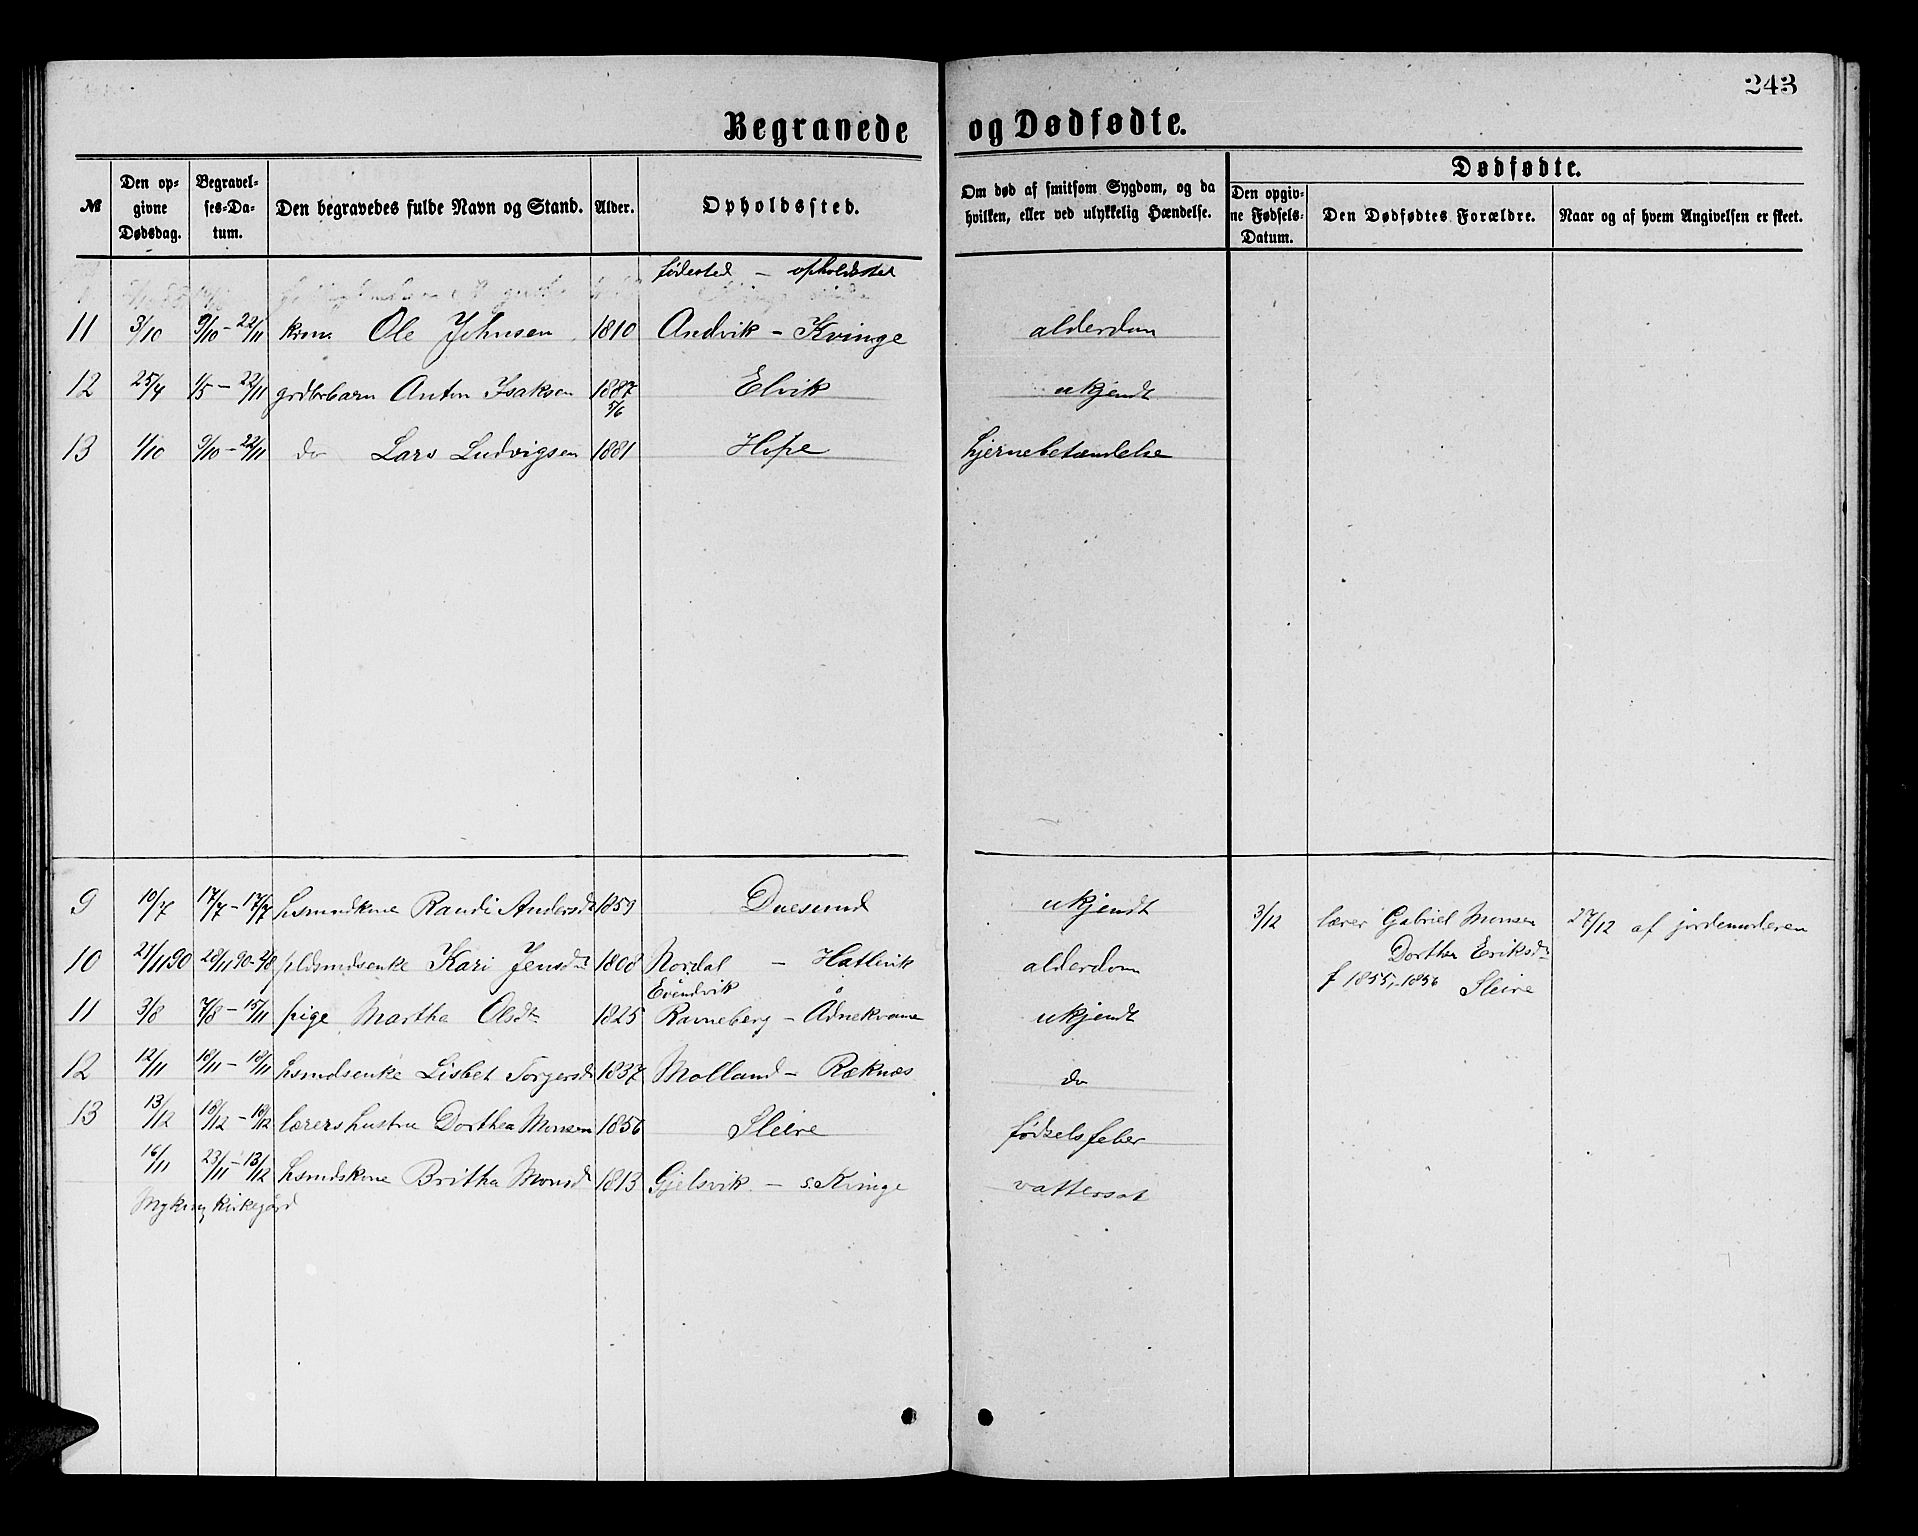 243
Begravede og Dødfødte.
№ Den opgivne Dødsdag. Begravelses-Datum. Den begravedes fulde Navn og Stand. Alder. Opholdssted. Om død af smitsom Sygdom, og da hvilken, eller ved ulykkelig Hændelse. Dødfødte. Den opgivne Fødsels-Datum. Den Dødfødtes Forældre. Naar og af hvem Angivelsen er skeet.
fødested – opholdsted
11 3/10 9/10 – 22/11 Ole Johnsen 1810 Andvik – Kvinge alderdom
12 25/4 1/5 – 22/11 grdbrbarn Anton Isaksen 1887 5/6 Elvik ukjendt
13 1/10 9/10 – 22/11 do Lars Ludvigsen 1881 Hope hjernebetændelse
9 10/7 17/7 – 17/7 hsmndkone Randi Andersdt 1859 Duesund ukjendt
3/12 lærer Gabriel Monsen 27/12 af jordemoderen
Dorthea Eriksdt
f 1855, 1856 Sleire
10 21/11 90 28/11 90 – 9/8 Kari Jensdt 1808 Nordal – Hatlevik alderdom
Evindvik
11 3/8 7/8 – 15/11 pige Martha Olsdt 1825 Ravneberg – Ådnekvame ukjendt
12 12/11 18/11 – 18/11 hsmdsenke Lisbet Torgersdt 1837 Molland – Ræknes do
13 13/12 18/12 – 18/12 lærershustru Dorthea Monsen 1856 Sleire fødselsfeber
16/11 23/11 – 13/12 hsmdskone Britha Monsdt 1813 Gjelsvik – s. Kvinge vattersot
Myking kirkegård